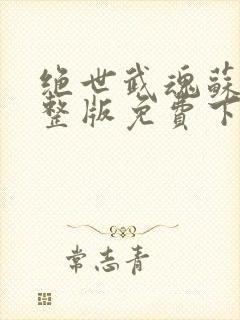 绝世武魂蘇
整版免費下
常志青